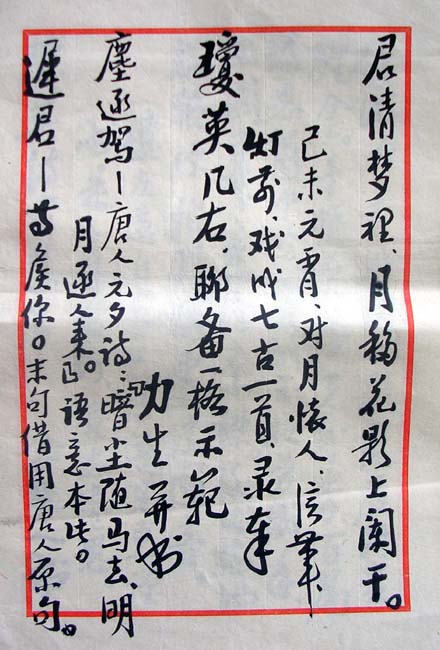 君清梦裡、月移花影上阑干。
己未元宵、对月懷人、信笔、
灯前、戏成七古一首、录奉
瓊英几右、聊备一格示范
力生并书
塵逐驾—唐人元夕詩:「暗尘随马去、明
月逐人来」。语意本此。
遲君—苦候你。末句借用唐人原句。